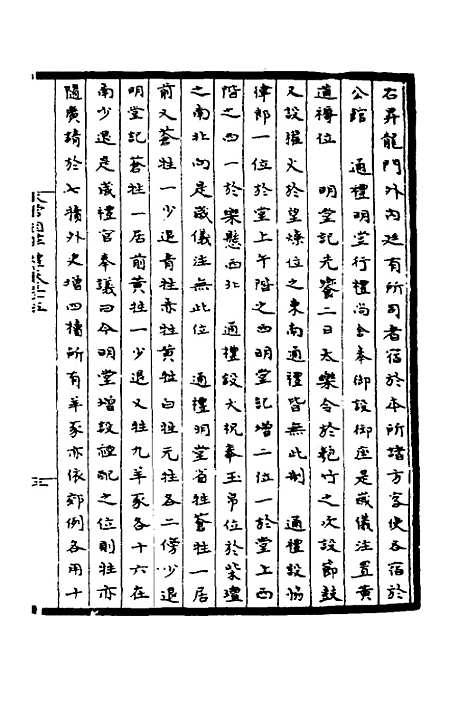 右昇龍門外內廷有所司者宿於本所諸方客使各宿於
公館　通禮明堂行禮尚舍奉御設御座是歲儀注置黃
道褥位　明堂記先饗二日太樂令於匏竹之次設節鼓
又設㸑火於望燎位之東南通禮皆無此制　通禮設協
律郎一位於堂上午階之西明堂記增二位一於堂上西
階之西一於樂懸西北　通禮設大祝奉玉帛位於紫壇
之南北向是歲儀注無此位　通禮明堂省牲蒼牲一居
前又蒼牲一少退青牲赤牲黃牲白牲元牲各二傍少退
明堂記蒼牲一居前黃牲一少退又牲九羊豕各十六在
南少退是歲禮官奉議曰今明堂增設禋配之位則牲亦
隨廣請於七犢外史增四犢所有羊豕亦依郊例各用十